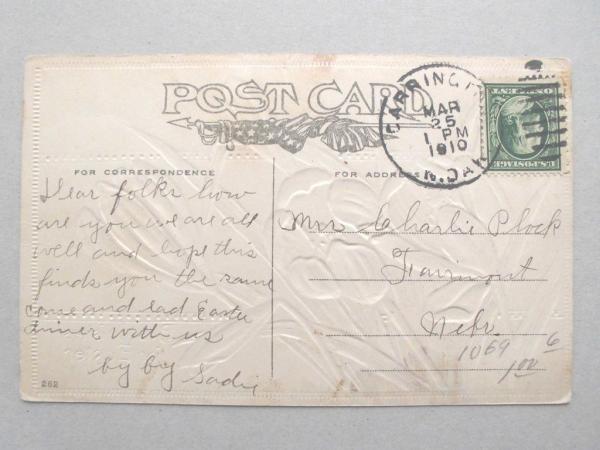 POST CARD
CARRINGT
MAR
25
1 PM
1910
N. DAK
U.S. POSTAGE
FOR CORRESPONDENCE
FOR ADDRESS
Dear folks how
are you we are all
well and hope this
finds you the same
come and ead Easter
dinner with us
by by Sadie
Mrs Charlie Plock
Fairmont
Nebr
1069
1.00
6
262